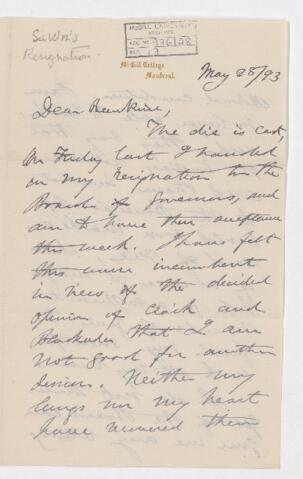 Sir Wm's
Resignation
McGILL UNIVERSITY
ARCHIVES
ACC. NO.
REF.
McGill College,
Montreal.
May 28/93
Dear Rankine,
The die is cast,
On Friday last I handed
in my resignation to the
Board of Governors, and
am to have their acceptance
this week. I have felt
this course incumbent
in view of the decided
opinion of Craik and
Blackader that I am
not good for another
Session. Neither my
lungs nor my heart
have recovered their